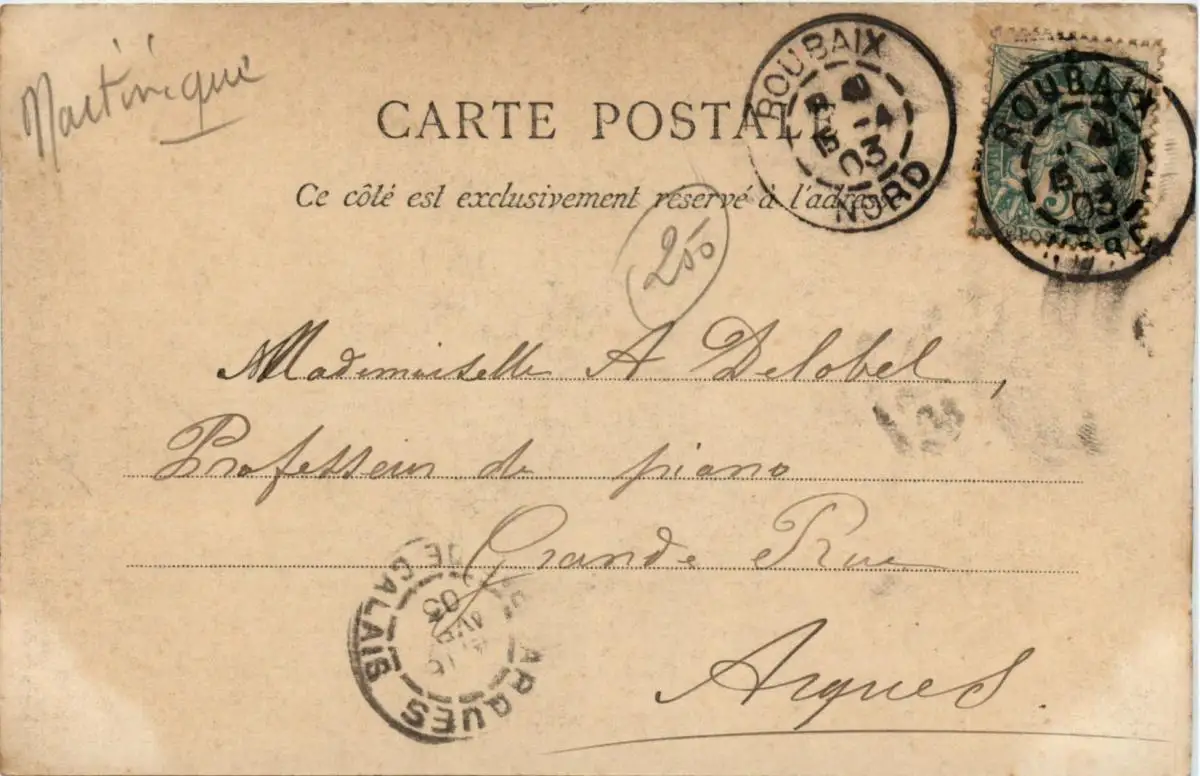 Martinique
CARTE POSTALE
Ce côté est exclusivement réservé à l'adresse
ROUBAIX
03
NORD
ROUBAIX
03
5
POSTES
250
Mademoiselle A Delobel,
Professeur de piano
Grande Rue
Arques.
ARQUES
DE CALAIS
AVR
03